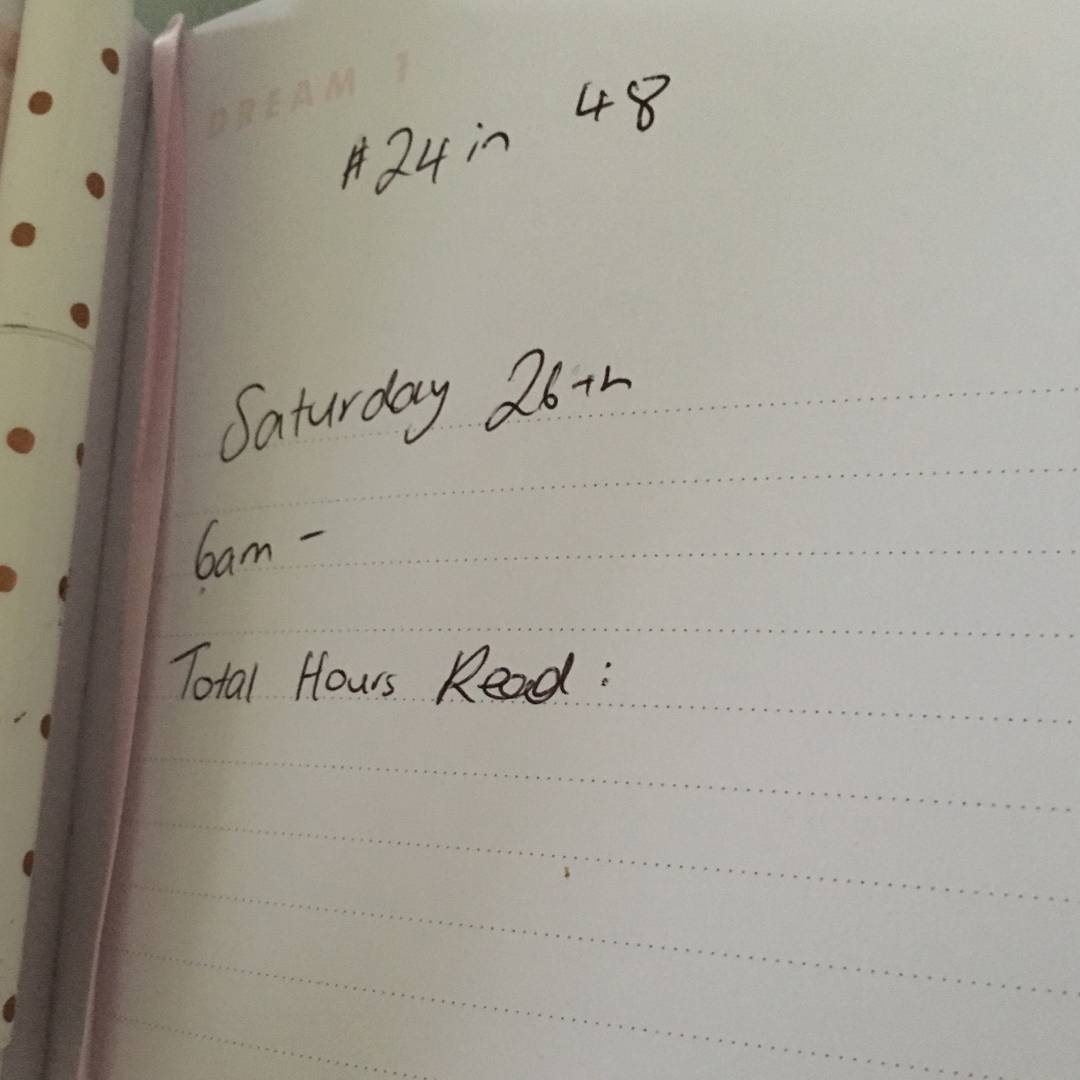 DREAM 1
#24 in 48
Saturday 26th
6am -
Total Hours Read :